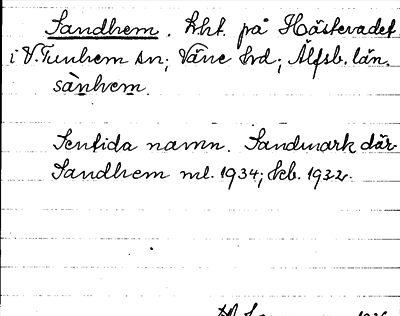 Sandhem. Lht. på Hästevadet
i V. Tunhem sn; Väne hd; Älfsb. län.
sànhem.
Sentida namn. Sandmark där
Sandhem ml. 1934; skb. 1932.